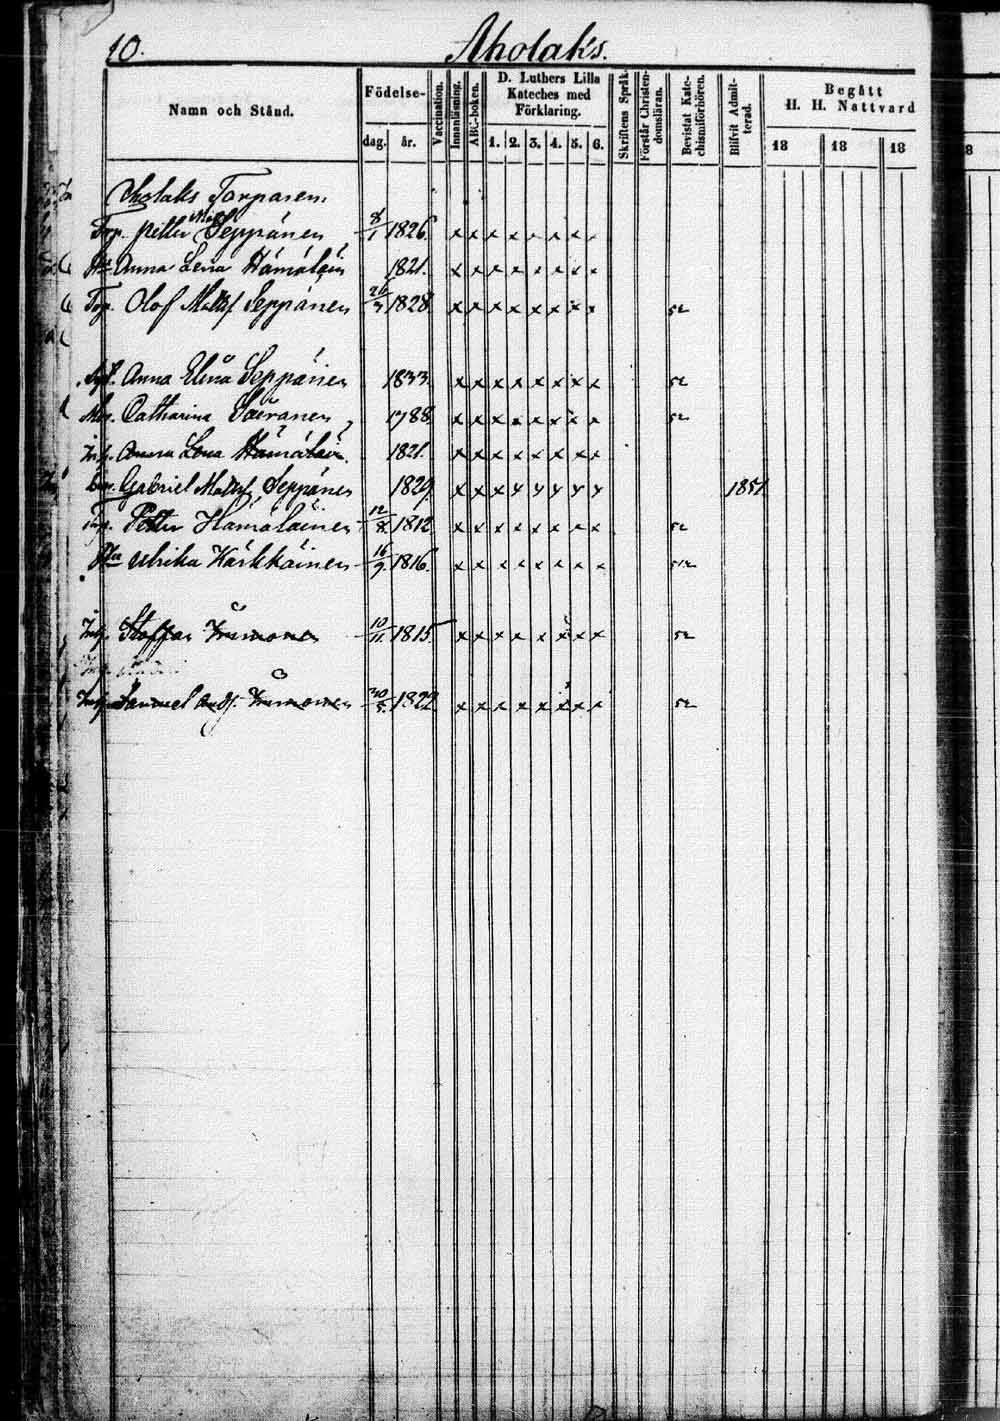 10. Aholaks.
Namn och Stånd. Födelse- dag. år. Vaccination. Innanläsning. ABC-boken. D. Luthers Lilla Kateches med Förklaring. 1. 2. 3. 4. 5. 6. Skriftens Språk Förstår Christendomsläran. Bevistat Katechismiförhören. Blifvit Admitterad. Begått H. H. Nattvard 18 18 18
Aholaks Torparen
Torp. Petter Matts Seppänen 8/1 1826. x x x x x x x x
Anna Lena Hämäläin 1821. x x x x x x x x
Torp. Olof Mattsf Seppänen 26/3 1828 x x x x x x x x 52
Anna Elisa Seppänen 1833. x x x x x x x x 52
Catharina 1788 x x x x x x x x 52
Anna Lena Hämäläin 1821. x x x x x x x x
Gabriel Mattsf Seppänen 1829 x x x x x x x x 1851
Petter Hämäläinen 12/8 1812 x x x x x x x x 52
Ulrika Kärkkäinen 16/9 1816. x x x x x x x x 52
Inh. Staffan Immonen 10/11 1815 x x x x x x x x 52
Inh. Samuel Immonen 30/8 1822 x x x x x x x x 52